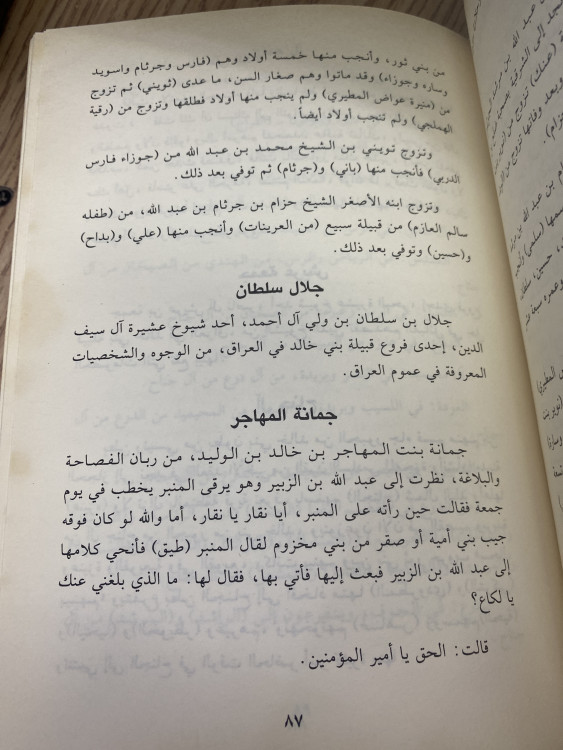 من بني ثور، وأنجب منها خمسة أولاد وهم (فارس وجرثام واسويد
وساره وجوزاء) وقد ماتوا وهم صغار السن، ما عدى (ثويني) ثم تزوج
من (منيرة عواض المطيري) ولم ينجب منها أولاد فطلقها وتزوج من (رقية
الهملجي) ولم تنجب أولاد أيضاً.
وتزوج ثويني بن الشيخ محمد بن عبد الله من (جوزاء فارس
الدربي) فأنجب منها (باني) و(جرثام) ثم توفي بعد ذلك.
وتزوج ابنه الأصغر الشيخ حزام بن جرثام بن عبد الله، من (طفله
سالم العازم) من قبيلة سبيع (من العرينات) وأنجب منها (علي) و(بداح)
و(حسين) وتوفي بعد ذلك.
جلال سلطان
جلال بن سلطان بن ولي آل أحمد، أحد شيوخ عشيرة آل سيف
الدين، إحدى فروع قبيلة بني خالد في العراق، من الوجوه والشخصيات
المعروفة في عموم العراق.
جمانة المهاجر
جمانة بنت المهاجر بن خالد بن الوليد، من ربان الفصاحة
والبلاغة، نظرت إلى عبد الله بن الزبير وهو يرقى المنبر يخطب في يوم
جمعة فقالت حين رأته على المنبر، أيا نقار يا نقار، أما والله لو كان فوقه
جيب بني أمية أو صقر من بني مخزوم لقال المنبر (طيق) فأنحي كلامها
إلى عبد الله بن الزبير فبعث إليها فأتي بها، فقال لها: ما الذي بلغني عنك
يا لكاع؟
قالت: الحق يا أمير المؤمنين.
٨٧